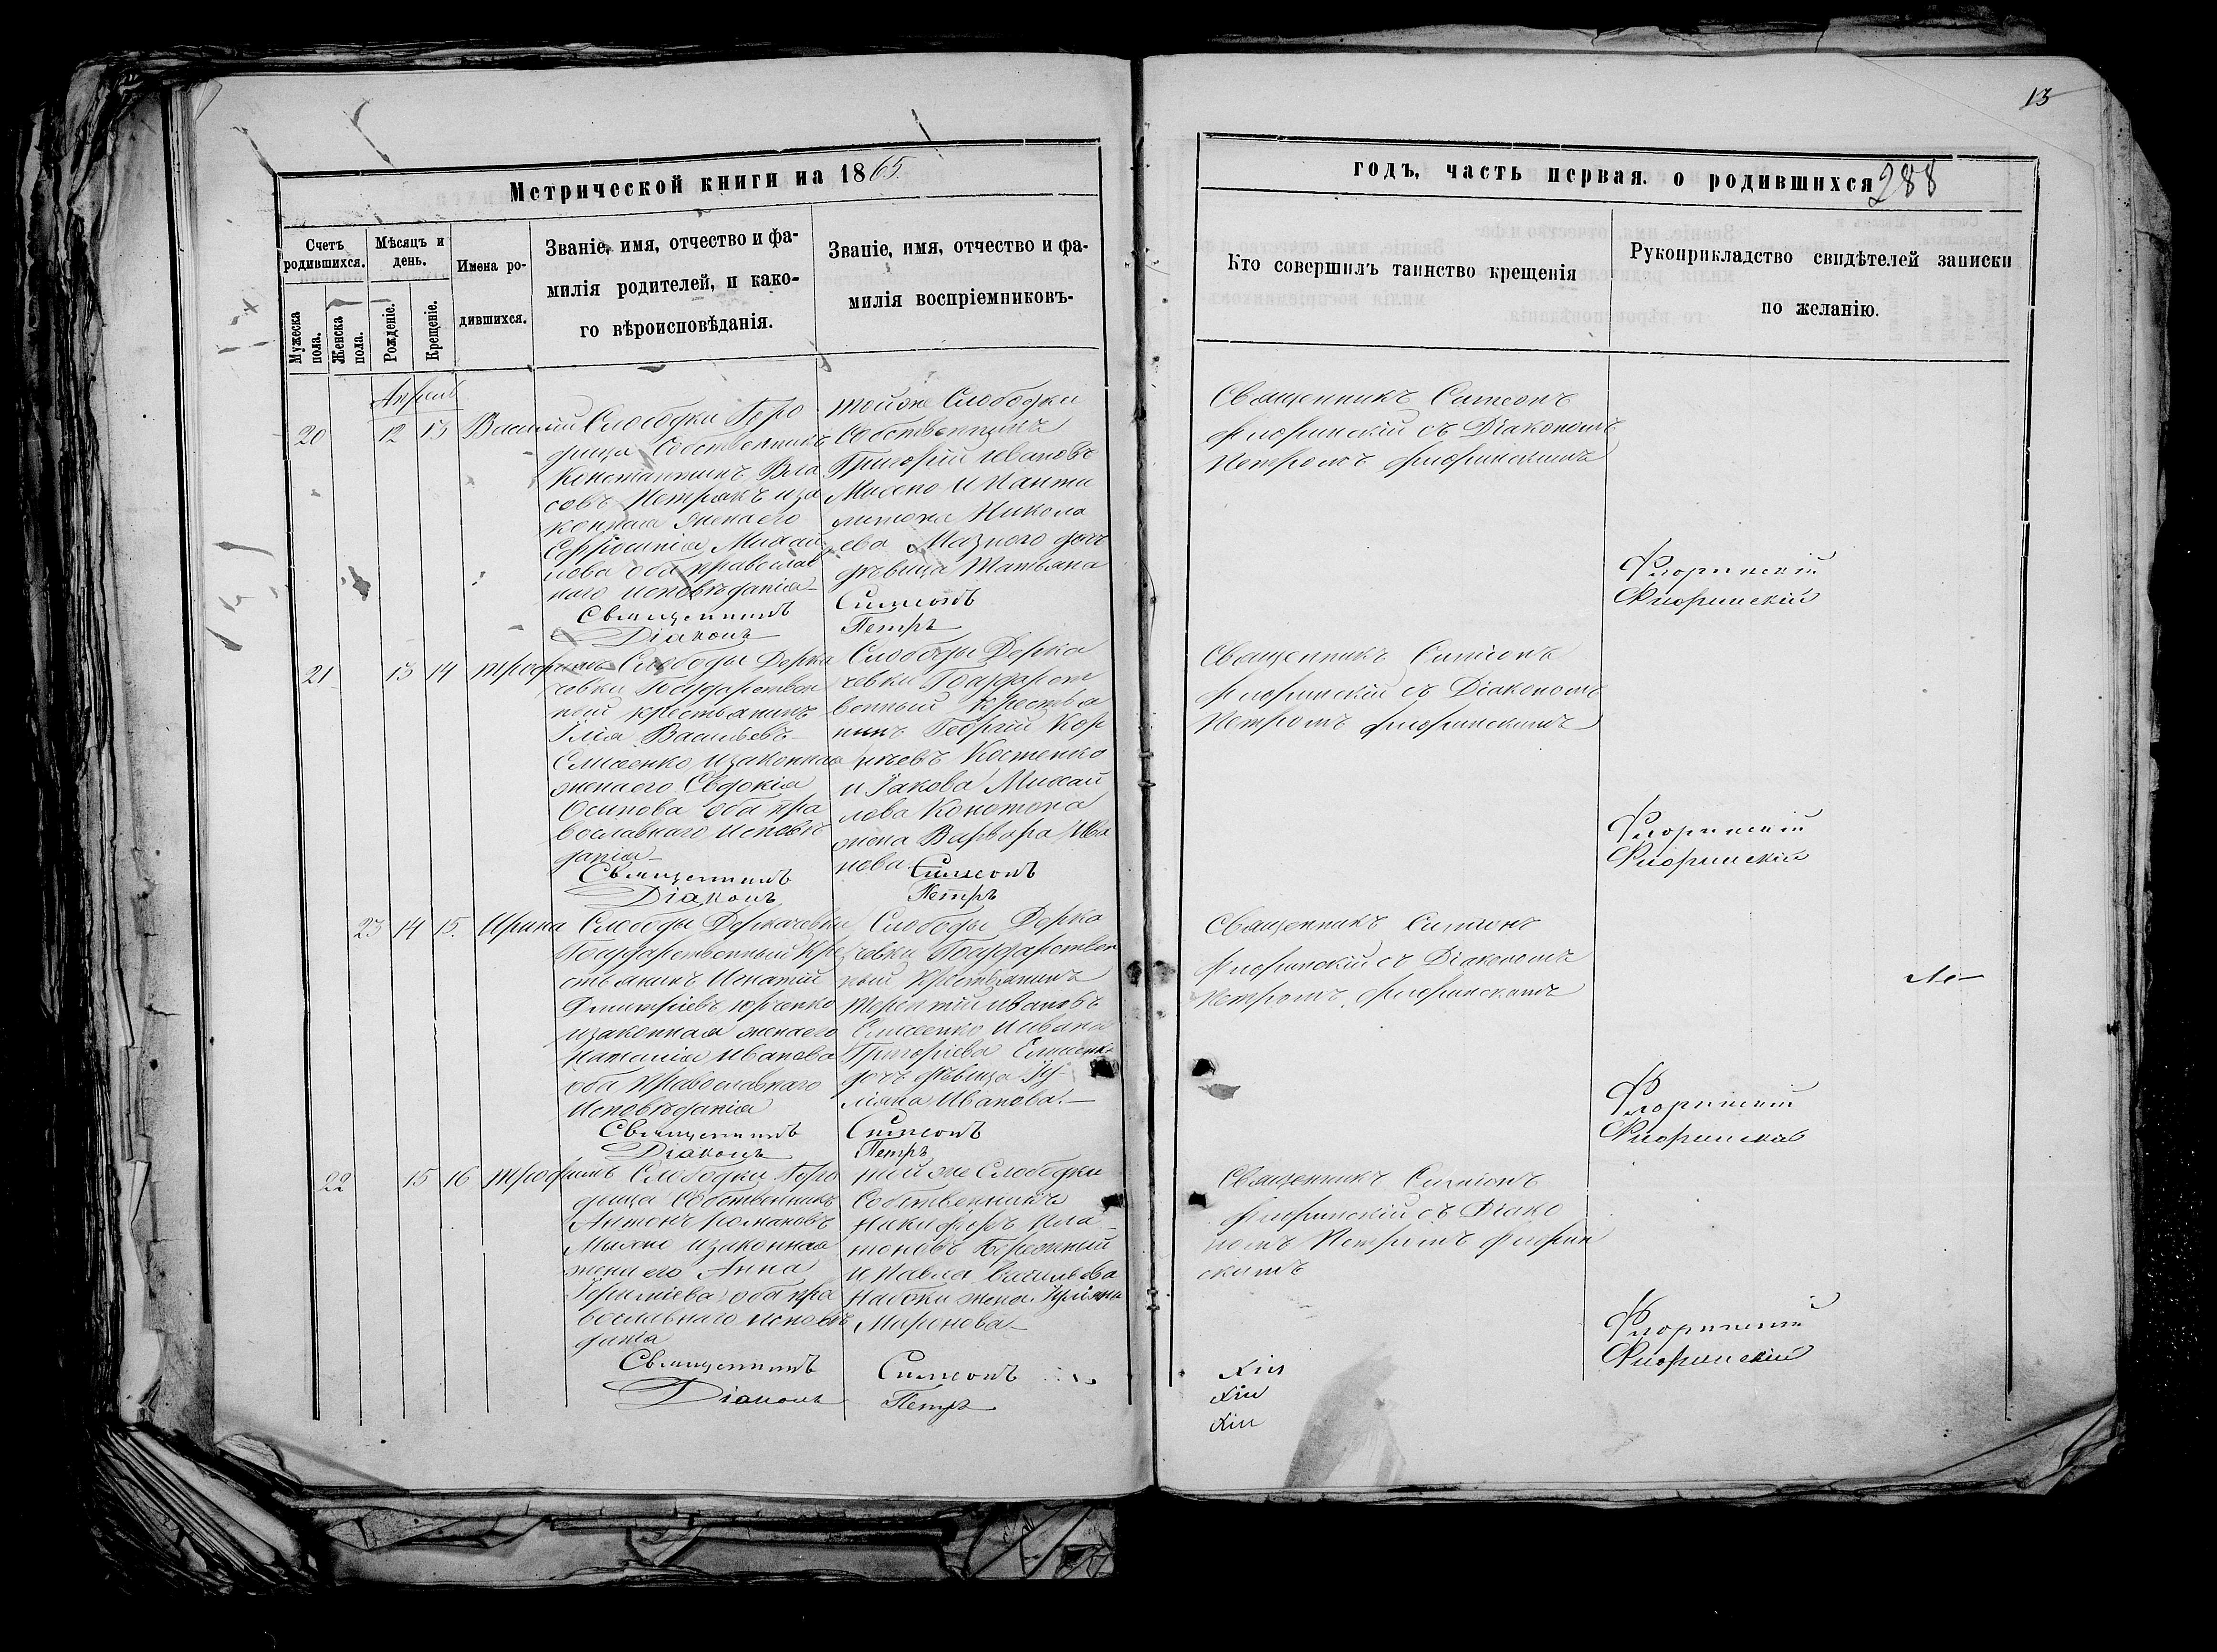 13
Метрической книги на 1865.
годъ, часть первая. о родившихся
288
Счетъ родившихся.
Мѣсяцъ и день.
Имена родившихся.
Званіе, имя, отчество и фа-
милія родителей, и како-
го вѣроисповѣданія.
Званіе, имя, отчество и фа-
милія воспріемниковъ.
Мужеска пола.
Женска пола.
Рожденіе.
Крещеніе.
Кто совершилъ таинство крещенія
Рукоприкладство свидѣтелей записки
по желанію.
Апрель
20 12 13 Василій
Слободки Горо
дища Собственникъ
Константинъ Вла
совъ Петракъ иза
конная жена его
Михаи
лова оба православ
наго исповѣданія
Священникъ
Діаконъ
тойже Слободки
Собственникъ
Григорій Ивановъ
и Панти
лимона Никола
ева дочь
дѣвица Татьяна
Симеонъ
Петръ
Священникъ Симеонъ
Флоринскій съ Діакономъ
Петромъ Флоринскимъ
Флоринскій
Флоринскій
21 13 14 Трофимъ
Слободы Дерка
човки Государствен
ный крестьянинъ
Илія Васильевъ
Елисеенко изаконная
жена его Евдокія
Осипова оба пра
вославнаго исповѣ
данія
Священникъ
Діаконъ
Слободы Дерка
човки Государст
венный крестья
нинъ Георгій Кор
нѣевъ Костенко
и Іакова Михаи
лова Конотопа
жена Варвара Ива
нова.
Симеонъ
Петръ
Священникъ Симеонъ
Флоринскій съ Діакономъ
Петромъ Флоринскимъ
Флоринскій
Флоринскій
23 14 15. Ирина
Слободы Деркачовки
Государственный Кре
стьянинъ Игнатій
Димитріевъ Юрченко
изаконная жена его
Наталія Иванова
оба православнаго
Исповѣданія
Священникъ
Діаконъ
Слободы Дерка
човки Государствен
ный крестьянинъ
Терентій Ивановъ
Елисеенко и Ивана
Григоріева Елисеенка
дочь дѣвица Іу
ліана Иванова.
Симеонъ
Петръ
Священникъ Симеонъ
Флоринскій съ Діакономъ
Петромъ Флоринскимъ
Флоринскій
Флоринскій
22 15 16 Трофимъ
Слободки Горо
дища Собственникъ
Антонъ Романовъ
изаконная
жена его Анна
оба пра
вославнаго исповѣ
данія
Священникъ
Діаконъ
той же Слободки
Собственникъ
Никифоръ Пла
тоновъ Бережный
и Павла Васильева
Набоки жена Іуліана
Миронова
Симеонъ
Петръ
Священникъ Симеонъ
Флоринскій съ Діако
номъ Петромъ Флорин
скимъ
Флоринскій
Флоринскій